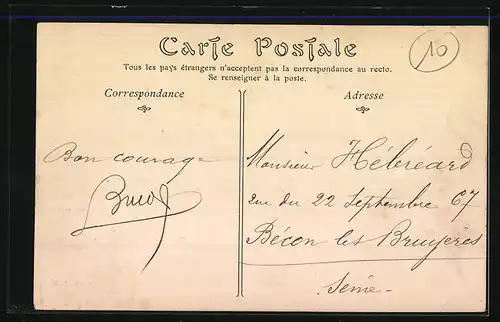 Carte Postale
10
Tous les pays étrangers n'acceptent pas la correspondance au recto.
Se renseigner à la poste.
Correspondance
Adresse
Bon courage
Monsieur Hébréard
rue du 22 Septembre 67
Bécon les Bruyères
Seine